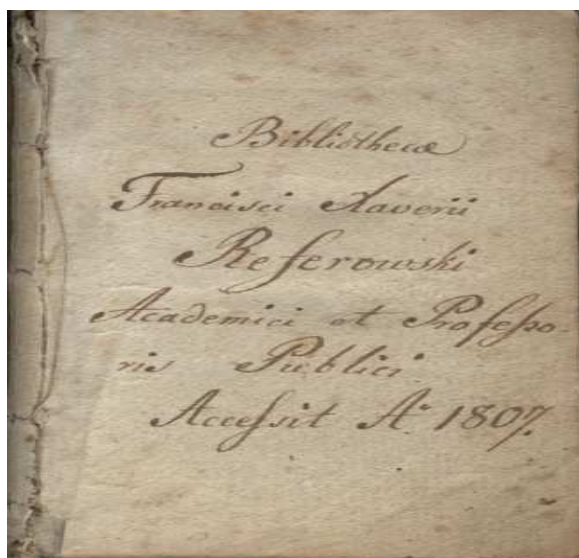 Bibliothecæ
Francisci Xaverii
Referowski
Academici et Professo-
ris Publici
Accessit A° 1807.